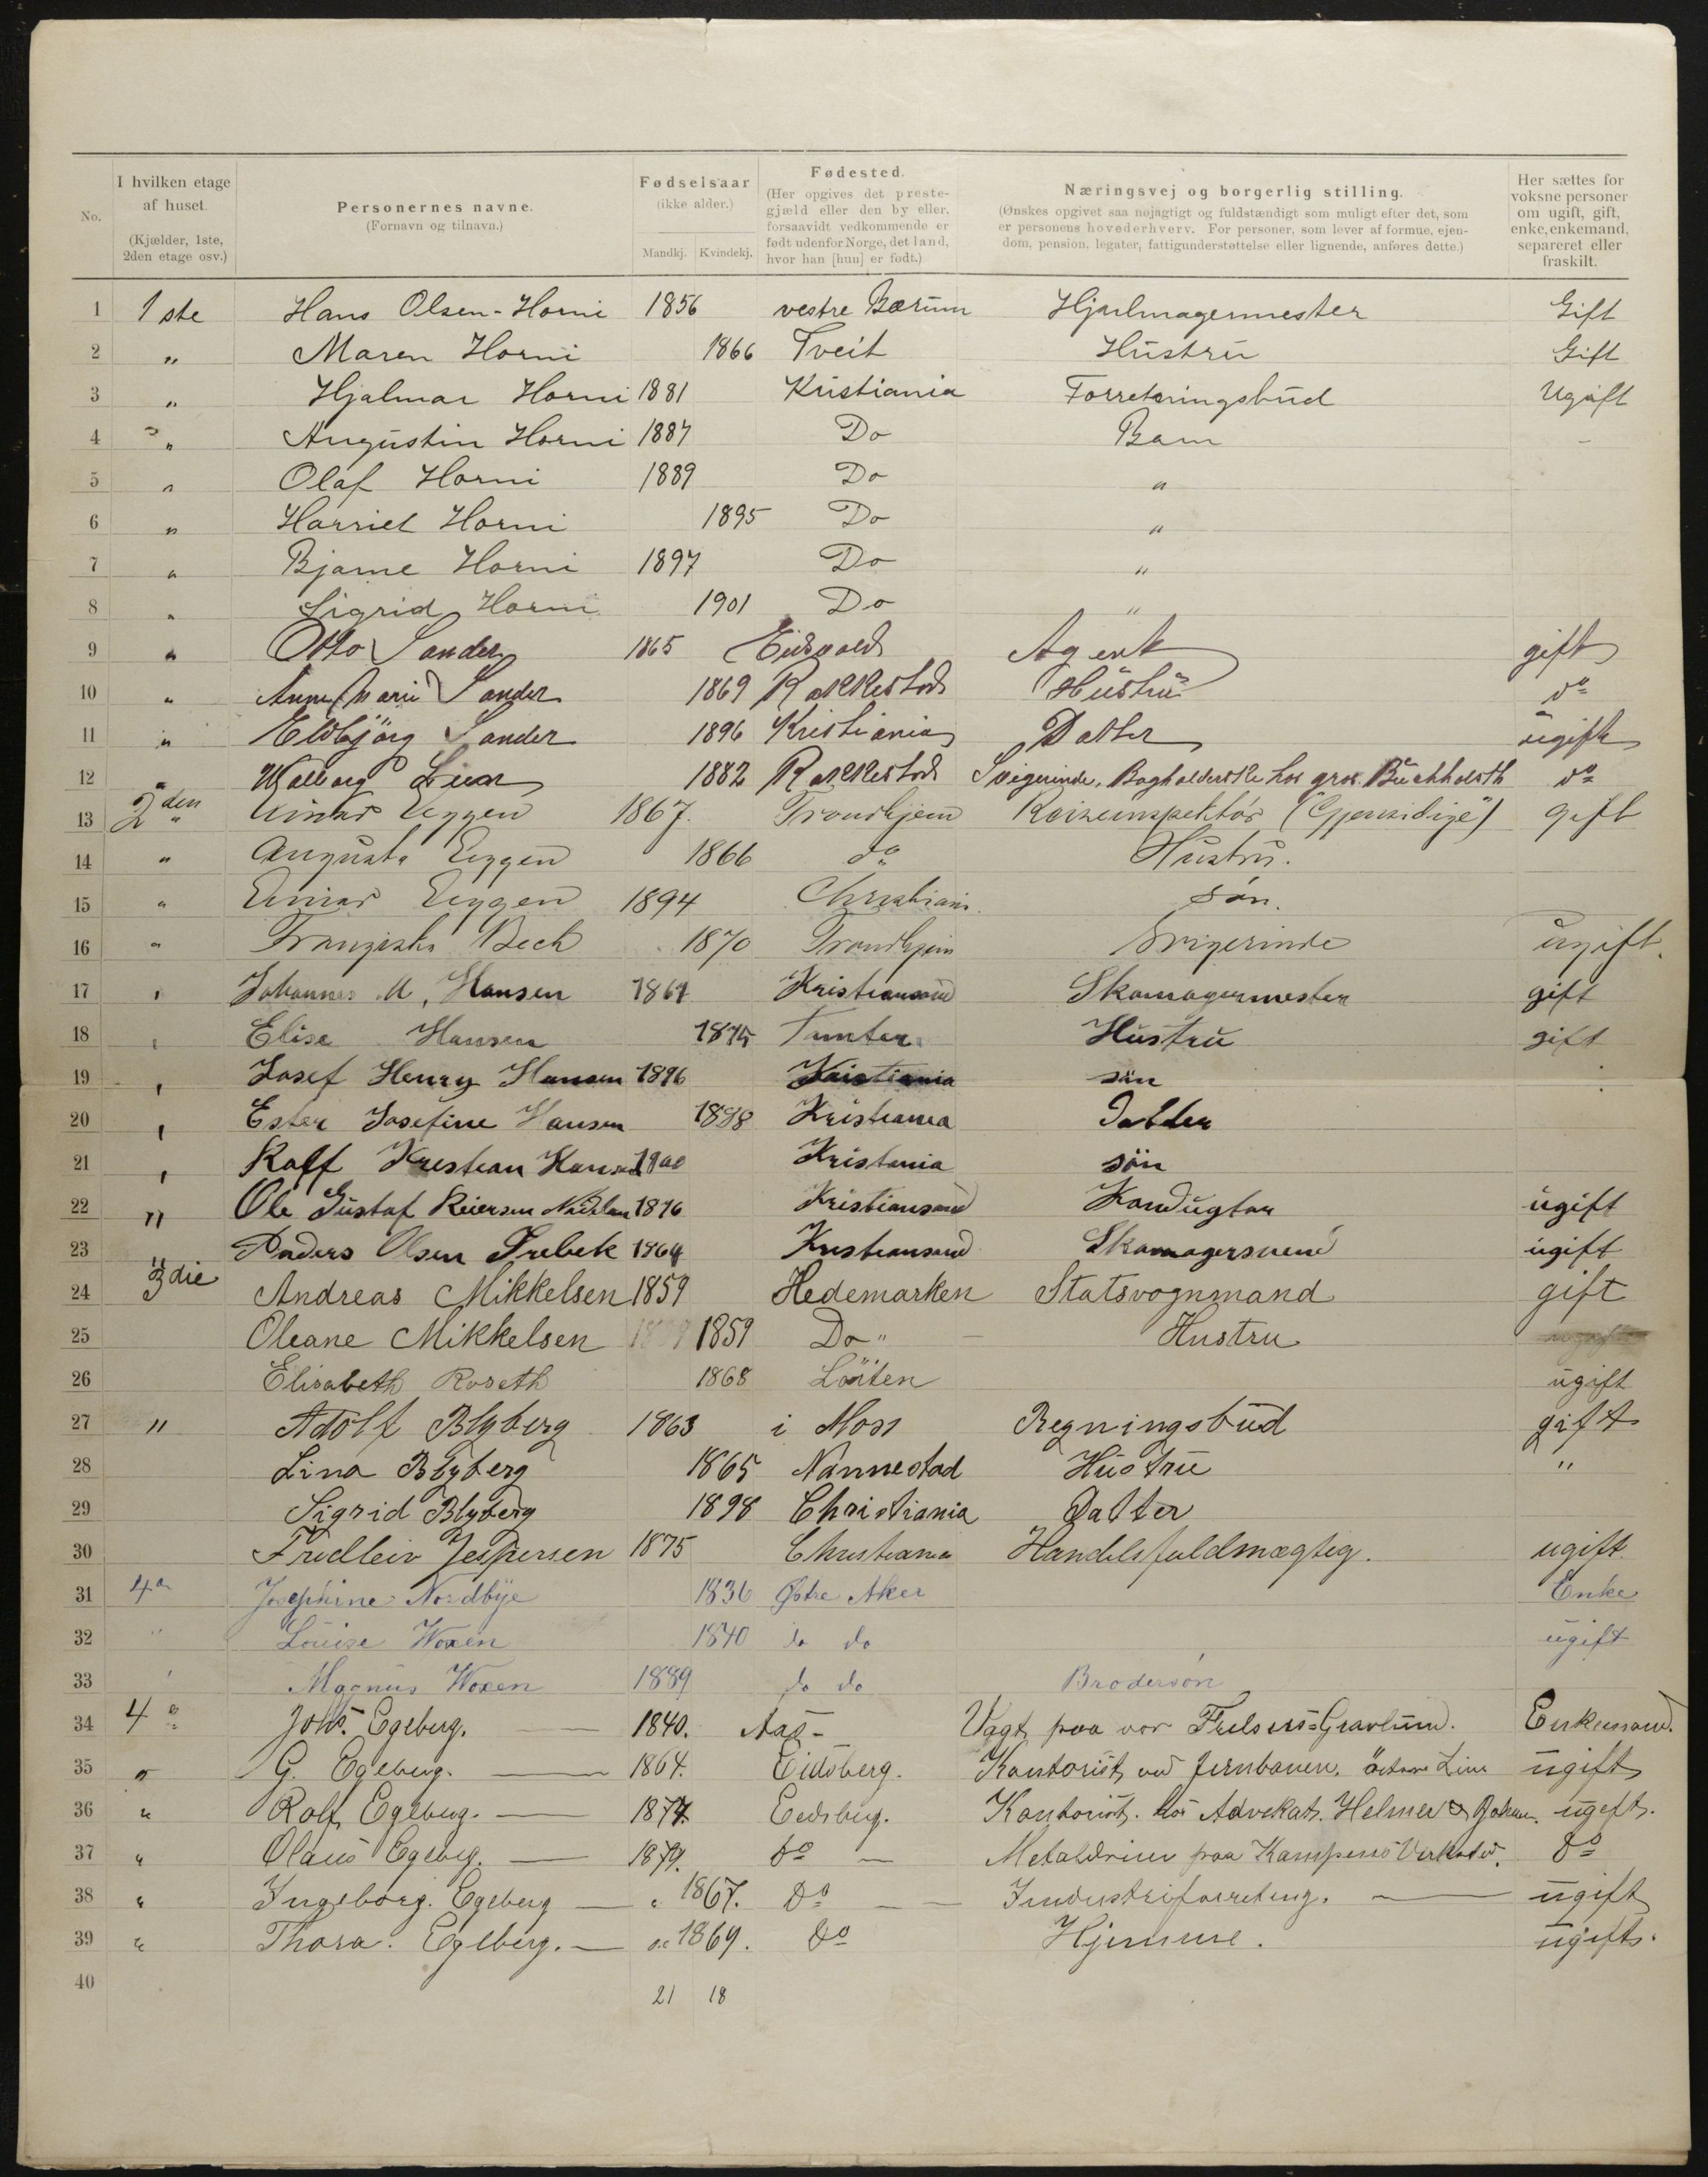 No.
I hvilken etage af huset. (Kjælder, 1ste, 2den etage osv.)
Personernes navne. (Fornavn og tilnavn.)
Fødselsaar (ikke alder.) Mandkj. Kvindekj.
Fødested. (Her opgives det prestegjæld eller den by eller, forsaavidt vedkommende er født udenfor Norge, det land, hvor han [hun] er født.)
Næringsvej og borgerlig stilling. (Ønskes opgivet saa nøjagtigt og fuldstændigt som muligt efter det, som er personens hovederhverv. For personer, som lever af formue, ejendom, pension, legater, fattigunderstøttelse eller lignende, anføres dette.)
Her sættes for voksne personer om ugift, gift, enke, enkemand, separeret eller fraskilt.
1 1ste Hans Olsen-Horni 1856 vestre Bærum Hjulmagermester Gift
2 " Maren Horni 1866 Tveit Hustru Gift
3 " Hjalmar Horni 1881 Kristiania Forretningsbud Ugift
4 " Augustin Horni 1887 Do Barn -
5 " Olaf Horni 1889 Do "
6 " Harriet Horni 1895 Do "
7 " Bjarne Horni 1897 Do "
8 " Sigrid Horni 1901 Do "
9 " Otto Sander 1865 Eidsvold Agent gift
10 " Anne Marie Sander 1869 Rakkestad Hustru do
11 " Eldbjörg Sander 1896 Kristiania Datter ugift
12 " Walborg Lien 1882 Rakkestad Svigerinde, Bogholderske hos gros. Buchholdth do
13 2den " Einar Eggen 1867. Trondhjem Reiseinspektör ("Gjensidige") gift
14 " Augusta Eggen 1866 do Hustru.
15 " Einar Eggen 1894 Christiani. Søn.
16 " Franziska Beck 1870 Trondhjem Svigerinde ugift.
17 " Johannes M. Hansen 1867 Kristiansand Skomagermester gift
18 " Elise Hansen 1875 Tomter Hustru gift
19 " Josef Henry Hansen 1896 Kristiania sön
20 " Ester Josefine Hansen 1898 Kristiania Datter
21 " Rolf Krestian Hansen 1900 Kristania sön
22 " Ole Gustaf Reiersen 1876 Kristiansand Kondugtør ugift
23 " Anders Olsen Trebek 1864 Kristiansand Skomagersvend ugift
24 3die Andreas Mikkelsen 1859 Hedemarken Statsvognmand gift
25 Oleane Mikkelsen 1859 Do " - Hustru
26 Elisabeth Roseth 1868 Löiten ugift
27 " Adolf Blyberg 1863 i Moss Regningsbud gift
28 Lina Blyberg 1865 Nannestad Hustru "
29 Sigrid Blyberg 1898 Christiania Datter
30 Fredleiv Jespersen 1875 Christiania Handelsfuldmægtig. ugift
31 4a Josephine Nordbye 1836 Østre Aker Enke
32 " Louise Woxen 1840 do do ugift
33 " Magnus Woxen 1889 do do Brodersøn
34 4a Johs. Egeberg. 1840. Aas - Vagt paa vor Frelsers=Gravlund. Enkemand.
35 " G. Egeberg. 1864. Eidsberg. Kontorist ved Jernbanen. östre Linie ugift
36 " Rolf Egeberg. 1877. Eidsberg. Kontorist. hos Advokat. Helmer & ugift.
37 " Olaus Egeberg. 1879. do - Metaldreier paa Kampens Verksted. do
38 " Ingeborg. Egeberg " 1867. Do - Industriforretng. ugift
39 " Thora. Egeberg. 1869. Do Hjemme. ugift.
40
21 18